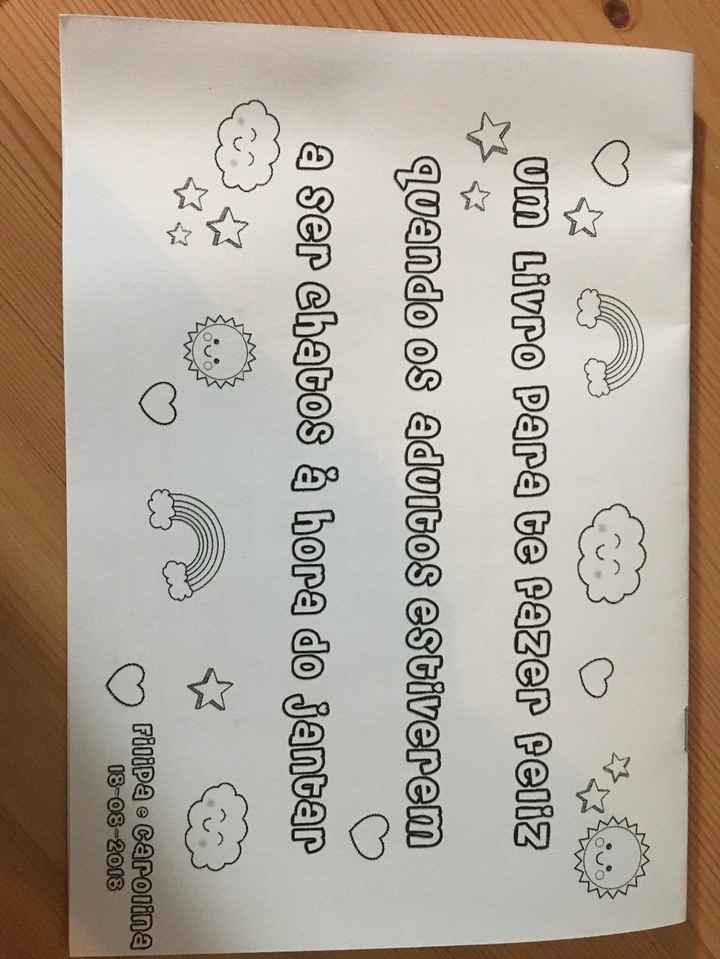 um Livro para te fazer feliz
quando os adultos estiverem
a ser chatos à hora do jantar
Filipa e Carolina
18-08-2018